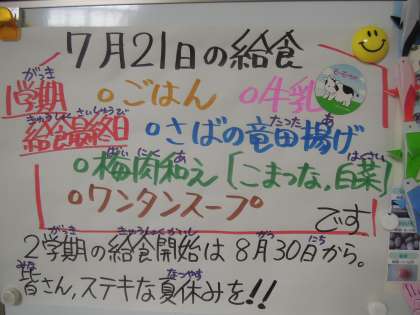 7月21日の給食
1学期
給食最終日
がっき
きゅうしょく さいしゅうび
○ごはん ○牛乳
○さばの竜田揚げ
たつた あ
○梅肉和え〔こまつな,白菜〕
ばい にく あ はくさい
○ワンタンスープ
です
2学期の給食開始は8月30日から。
がっき きゅうしょくかいし がつ にち
皆さん,ステキな夏休みを!!
みな なつやす